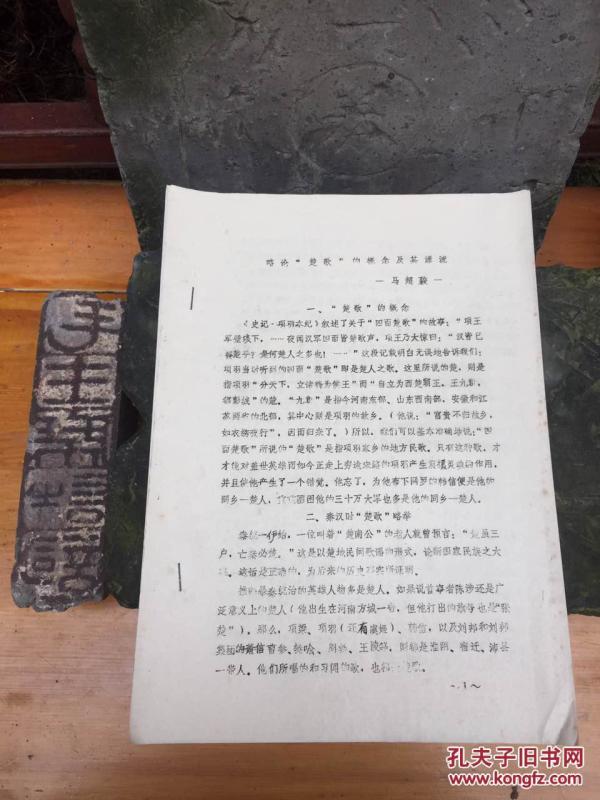 略论“楚歌”的概念及其源流
—马超骏—
一、“楚歌”的概念
《史记·项羽本纪》叙述了关于“四面楚歌”的故事：“项王
军壁垓下，……夜闻汉军四面皆楚歌声，项王乃大惊曰：“汉皆已
得楚乎？是何楚人之多也！……”这段记载明白无误地告诉我们：
项羽当时听到的四面“楚歌”即是楚人之歌。这里所说的楚，则是
指项羽“分天下，立诸将为侯王”而“自立为西楚霸王，王九郡，
都彭城”的楚。“九郡”是指今河南东部、山东西南部、安徽和江
苏两省的北部，其中心则是项羽的故乡。（他说：“富贵不归故乡，
如衣锦夜行”，因而归来了。）所以，我们可以基本准确地说：“四
面楚歌”所说的“楚歌”是指项羽故乡的地方民歌。只有这种歌，才
才能对盖世英雄而如今正走上穷途末路的项羽产生震撼灵魂的作用，
并且给他产生了一个错觉。他忘了，为他布下网罗的韩信便是他的
同乡—楚人，围他的三十万大军也多是他的同乡—楚人。
二、秦汉时“楚歌”略举
秦统一伊始，一位叫着“楚南公”的老人就曾预言：“楚虽三
户，亡秦必楚。”这是以楚地民间歌谣的形式，论断国家民族之大
事。这话是正确的，为后来的历史事实所证明。
推翻暴秦统治的英雄人物多是楚人。如果说首事者陈涉还是广
泛意义上的楚人（他出生在河南方城一带，但他打出的旗号也是“张
楚”）。那么，项梁、项羽（还有虞姬）、韩信，以及刘邦和刘邦
集团的萧曹参、樊哙、周勃、王陵等，则都是淮阴、宿迁、沛县
一带人。他们所唱的和习闻的歌，也楚歌。
～1～
孔夫子旧书网
www.kongfz.com